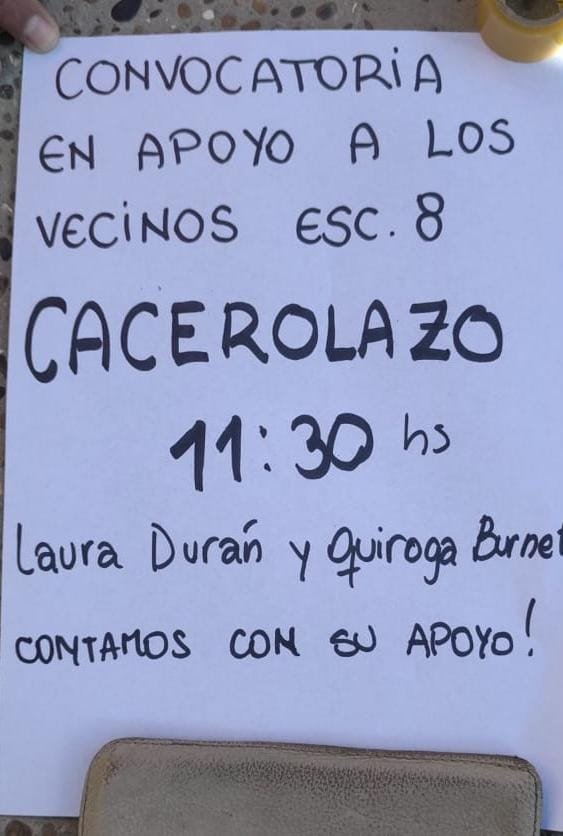 CONVOCATORiA
EN APOYO A LOS
VECiNOS ESC. 8
CACEROLAZO
11:30 hs
Laura Durán y Quiroga Burnet
CONTAMOS CON SU APOYO!